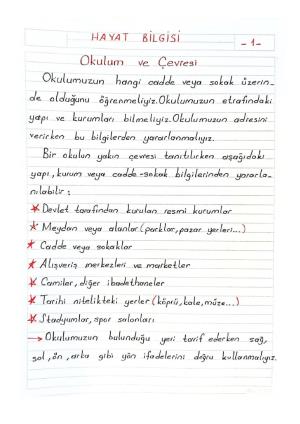 HAYAT BİLGİSİ
-1-
Okulum ve Çevresi
Okulumuzun hangi cadde veya sokak üzerin-
de olduğunu öğrenmeliyiz. Okulumuzun etrafındaki
yapı ve kurumları bilmeliyiz. Okulumuzun adresini
verirken bu bilgilerden yararlanmalıyız.
Bir okulun yakın çevresi tanıtılırken aşağıdaki
yapı, kurum veya cadde-sokak bilgilerinden yararla-
nılabilir:
* Devlet tarafından kurulan resmi kurumlar
* Meydan veya alanlar (parklar, pazar yerleri...)
* Cadde veya sokaklar
* Alışveriş merkezleri ve marketler
* Camiler, diğer ibadethaneler
* Tarihi nitelikteki yerler (köprü, kale, müze...)
* Stadyumlar, spor salonları
→ Okulumuzun bulunduğu yeri tarif ederken sağ,
sol, ön, arka gibi yön ifadelerini doğru kullanmalıyız.